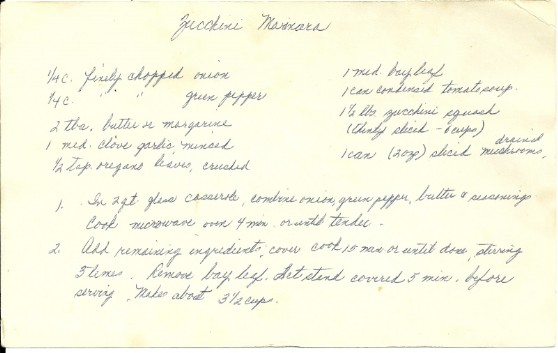 Zucchini Marinara
1/4 c. finely chopped onion
1/4 c. " " green pepper
2 tbs. butter or margarine
1 med. clove garlic, minced
1/2 tsp. oregano leaves, crushed
1 med. bay leaf
1 can condensed tomato soup.
1 1/2 lbs. zucchini squash
(thinly sliced - 6 cups)
1 can (2 oz) sliced mushrooms, drained
1. In 2 qt. glass casserole, combine onion, green pepper, butter & seasonings
Cook microwave oven 4 min. or until tender.
2. Add remaining ingredients, cover cook 15 min or until done, stirring
5 times. Remove bay leaf. Let stand covered 5 min. before
serving. Makes about 3 1/2 cup.